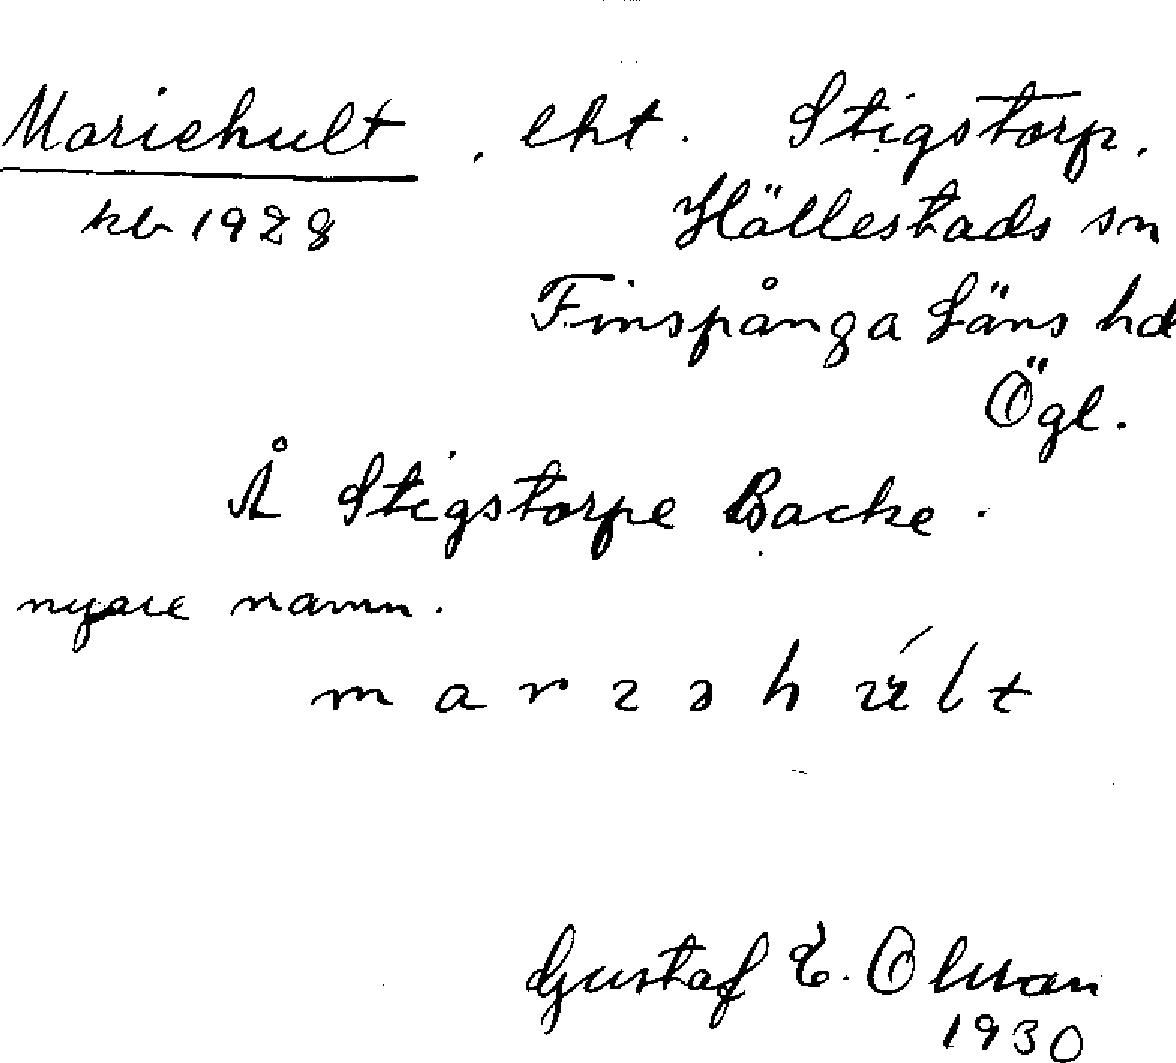 Mariehult, lht. Stigstorp.
kb 1928 Hällestads sn
Finspånga Läns hd
Ögl.
Å Stigstorpe Backe.
nyare namn.
Gustaf E. Olsson
1930